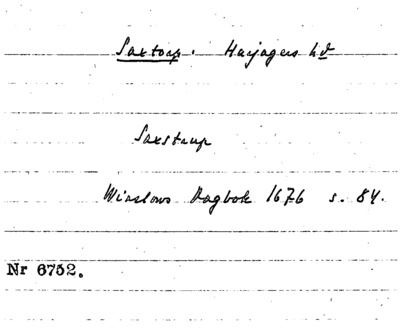 Saxtorp. Harjagers hd
Saxstrup
Winslows Dagbok 1676 s. 84.
Nr 6752.